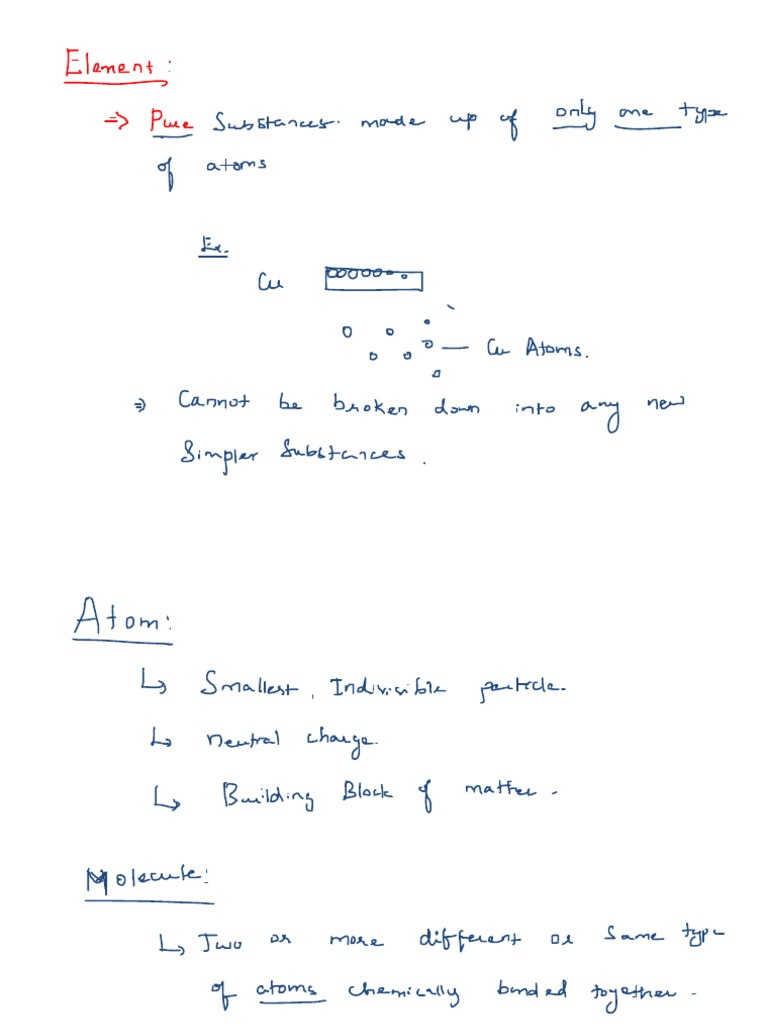 Element:
⇒ Pure Substances. made up of only one type
of atoms
Ex.
Cu
Cu Atoms.
⇒ Cannot be broken down into any new
Simpler Substances.
Atom:
↳ Smallest, Indivisible particle.
↳ neutral charge.
↳ Building Block of matter.
Molecule:
↳ Two or more different or same type
of atoms chemically bonded together.